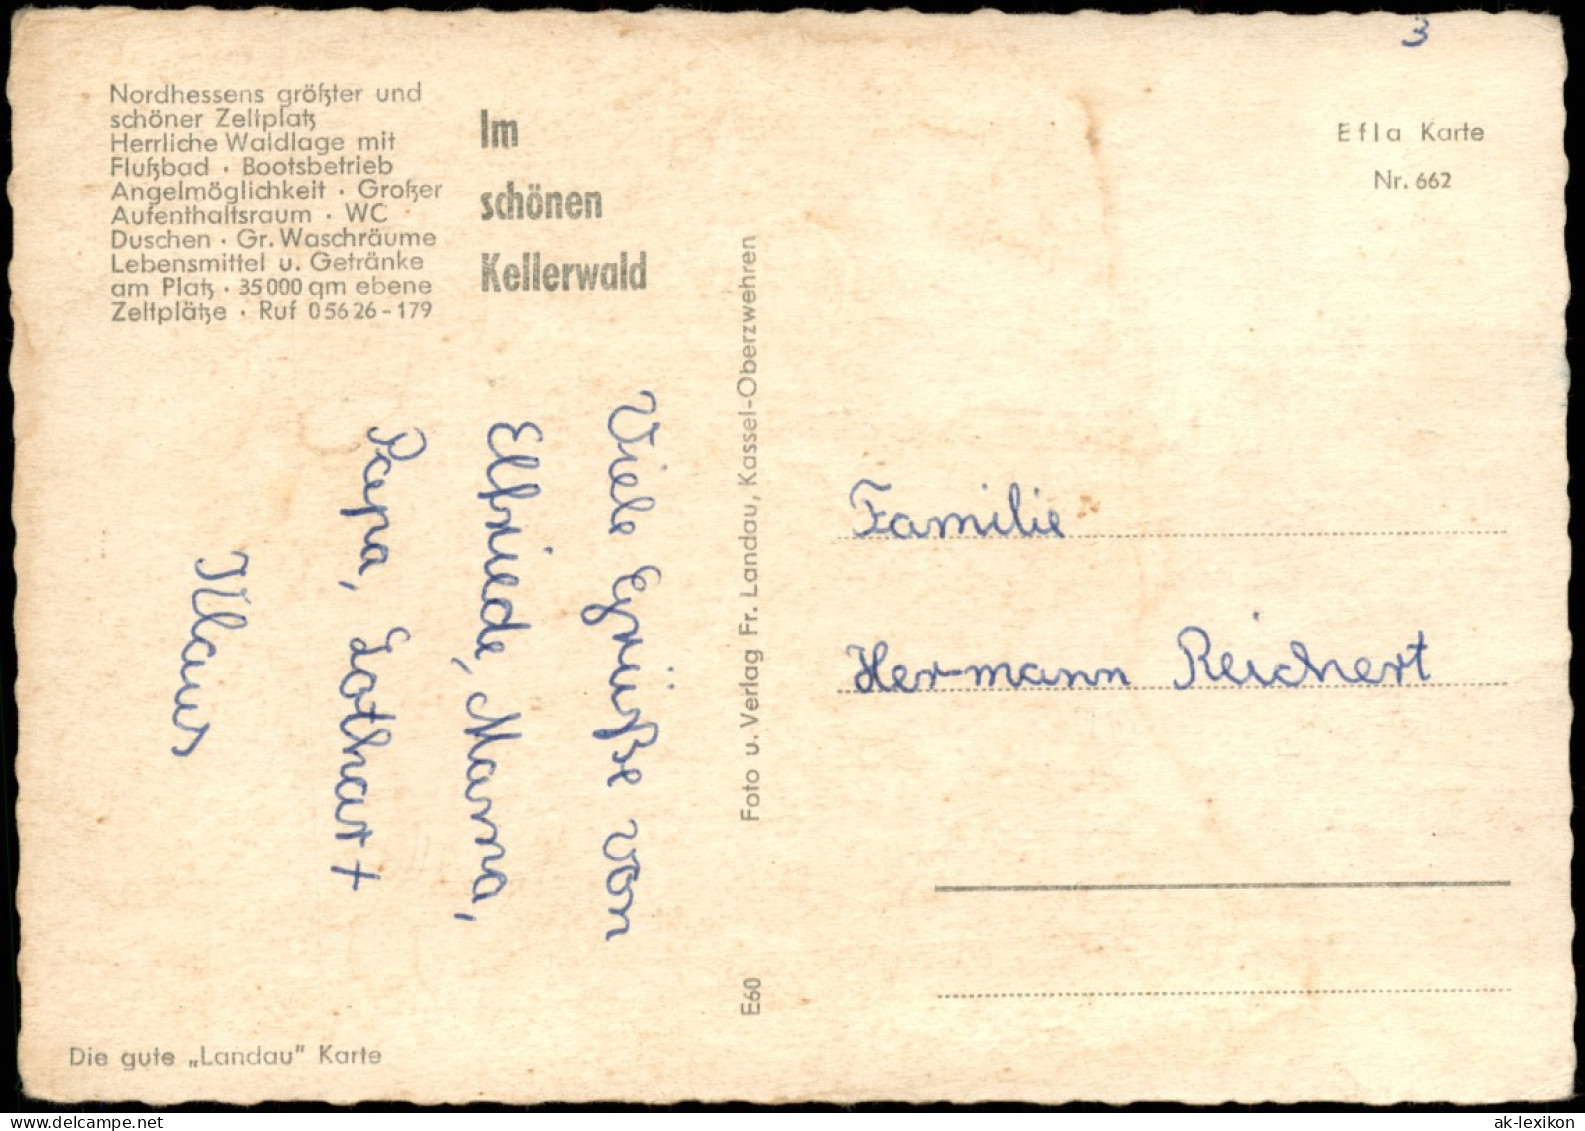 3
Nordhessens größter und
schöner Zeltplatz
Herrliche Waldlage mit
Flußbad · Bootsbetrieb
Angelmöglichkeit · Großer
Aufenthaltsraum · WC
Duschen · Gr. Waschräume
Lebensmittel u. Getränke
am Platz · 35000 qm ebene
Zeltplätze · Ruf 05626-179
Im
schönen
Kellerwald
Efla Karte
Nr. 662
Viele Grüße von
Elfriede, Mama,
Papa, Lothar +
Klaus
Foto u. Verlag Fr. Landau, Kassel-Oberzwehren
E60
Familie
Hermann Reichert
Die gute „Landau" Karte
delcampe.net
ak-lexikon